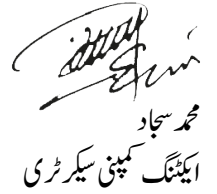 محمد سجاد
ایکٹنگ کمپنی سیکرٹری